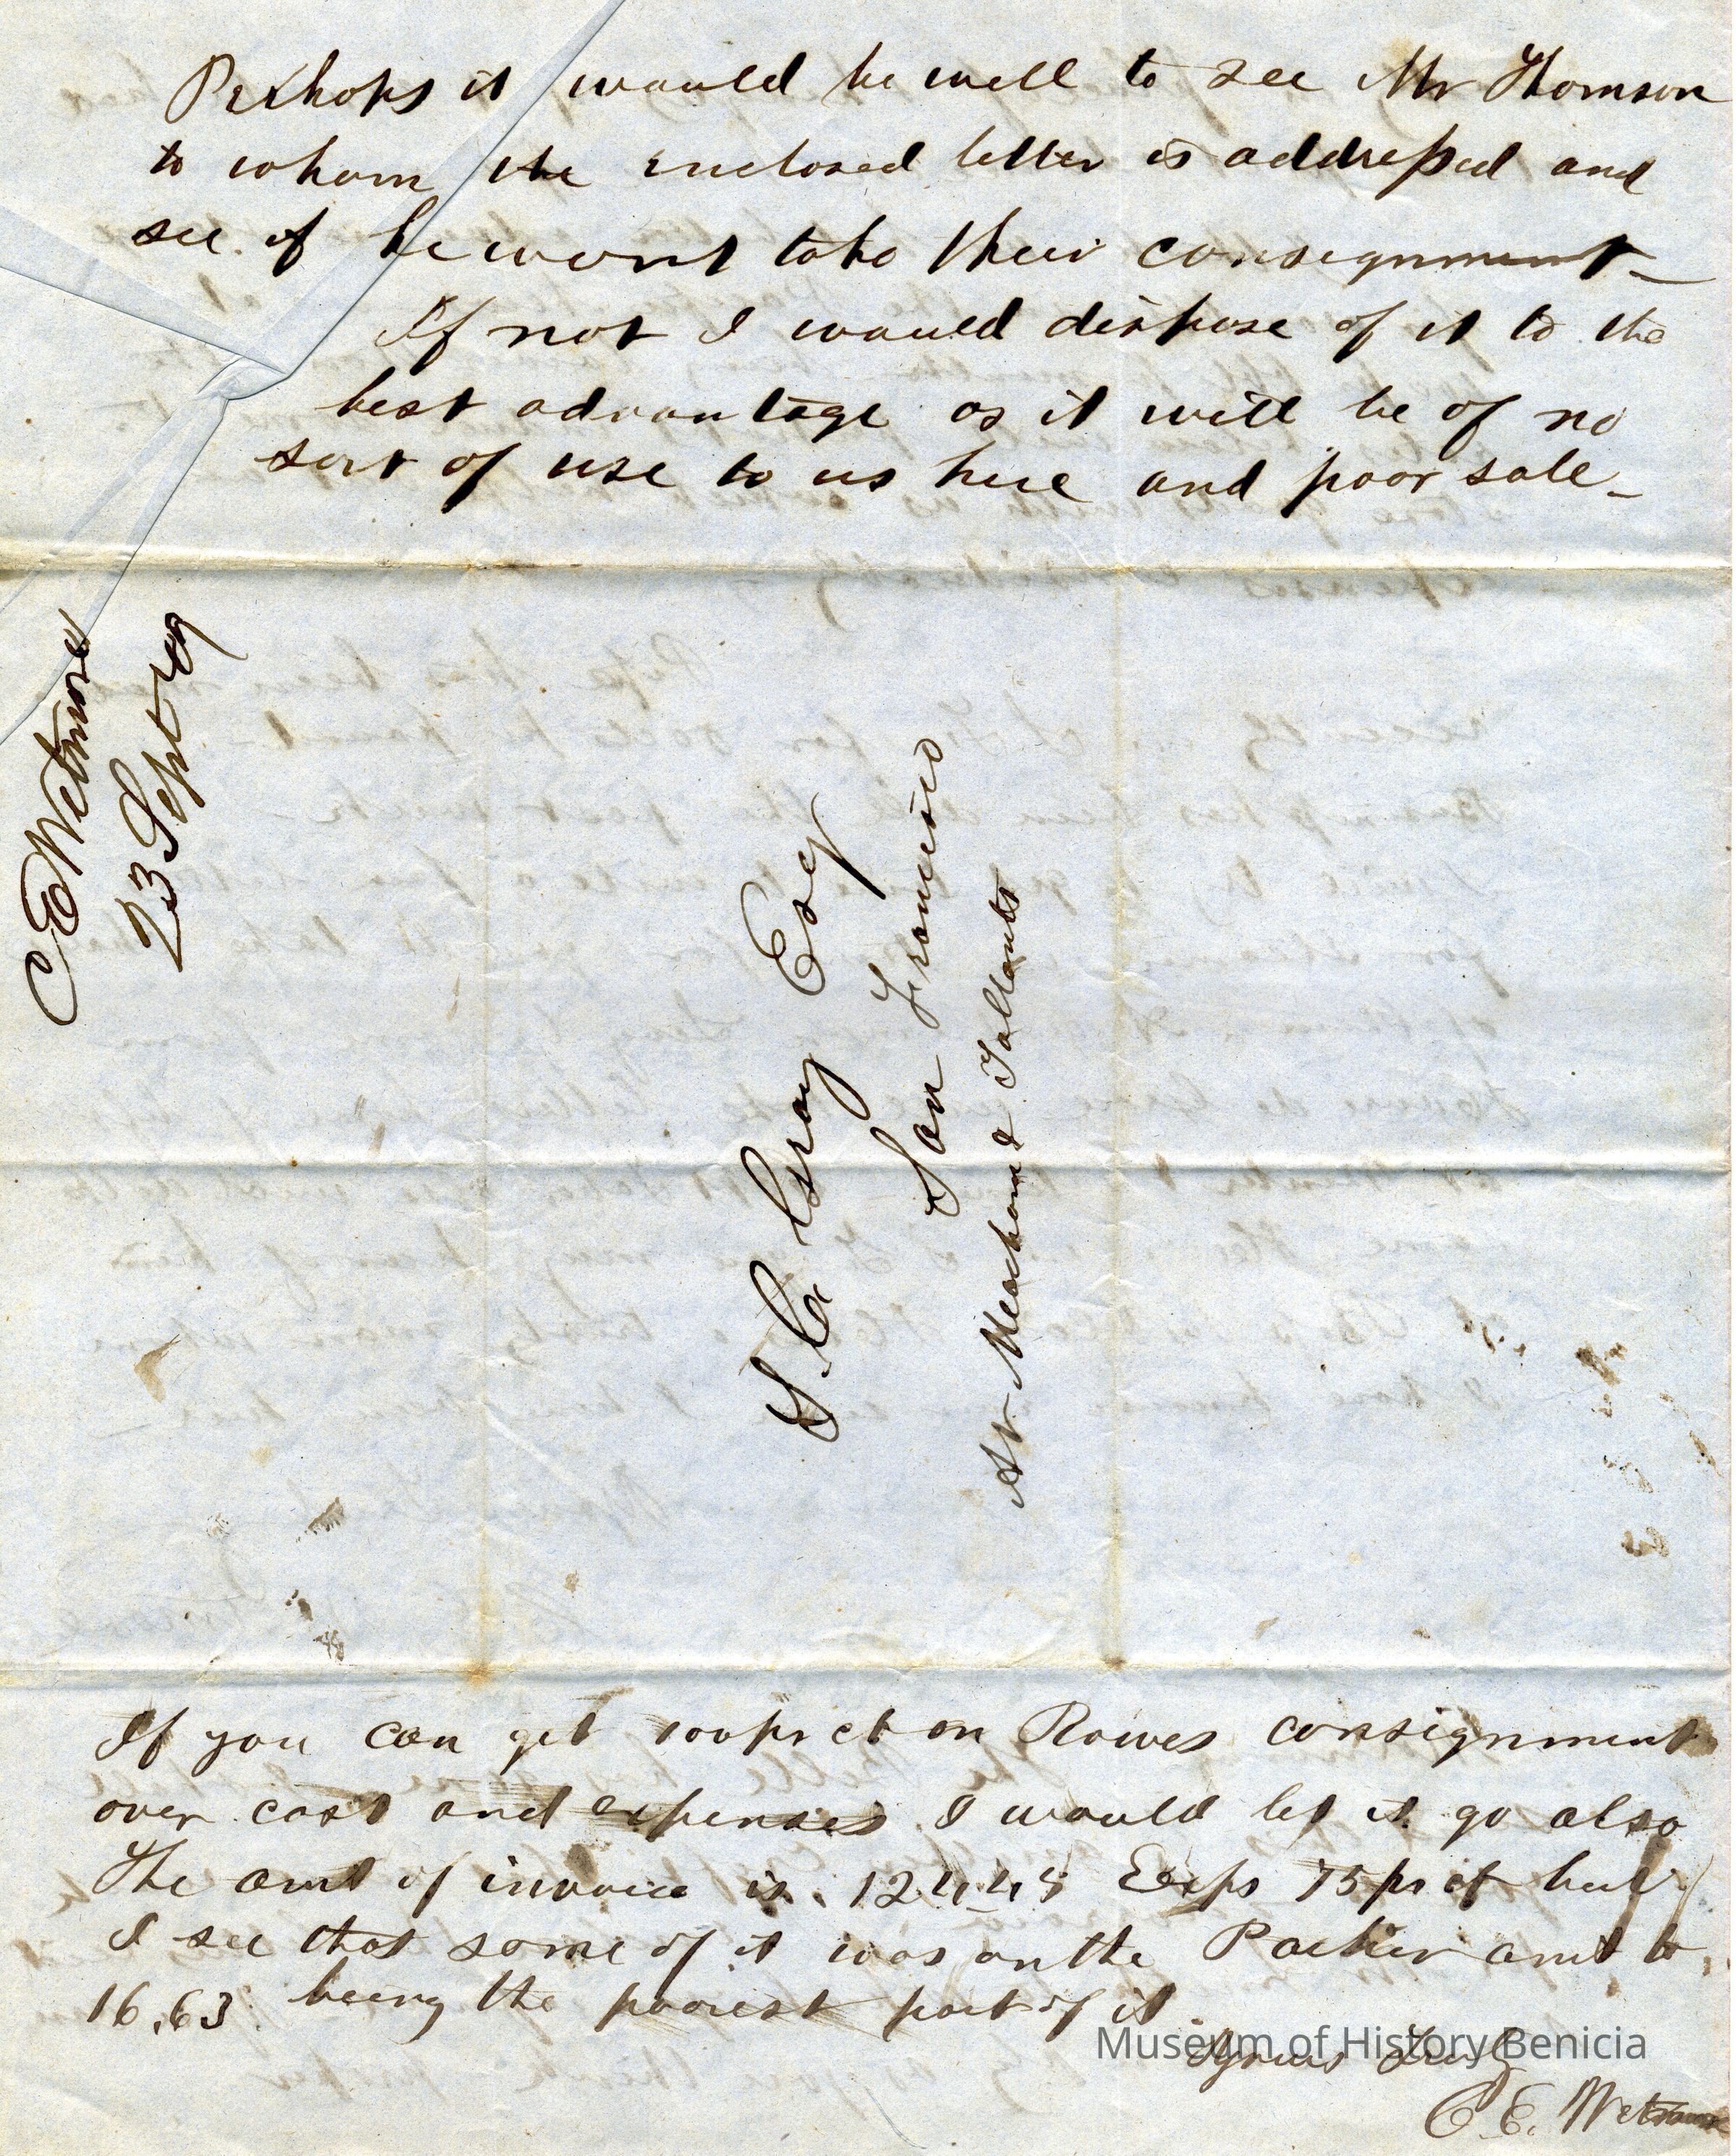 Perhaps it would be well to see Mr Thomson
to whom the enclosed letter is addressed and
see if he wont take their consignment_
If not I would dispose of it to the
best advantage as it will be of no
sort of use to us here and poor sale_
C E Wetmore
23 Sept
S. C. Gray Esq
San Francisco
At Meacham & Tallants
If you can get 100 pr ct on Rowes consignment
over cost and expenses I would let it go also
The amt of invoice is Exps 75 pr ct but
I see that some of it was on the Packer amt to
16.63 being the poorest part of it
Museum of History Benicia
Yours Truly
C. E. Wetmore